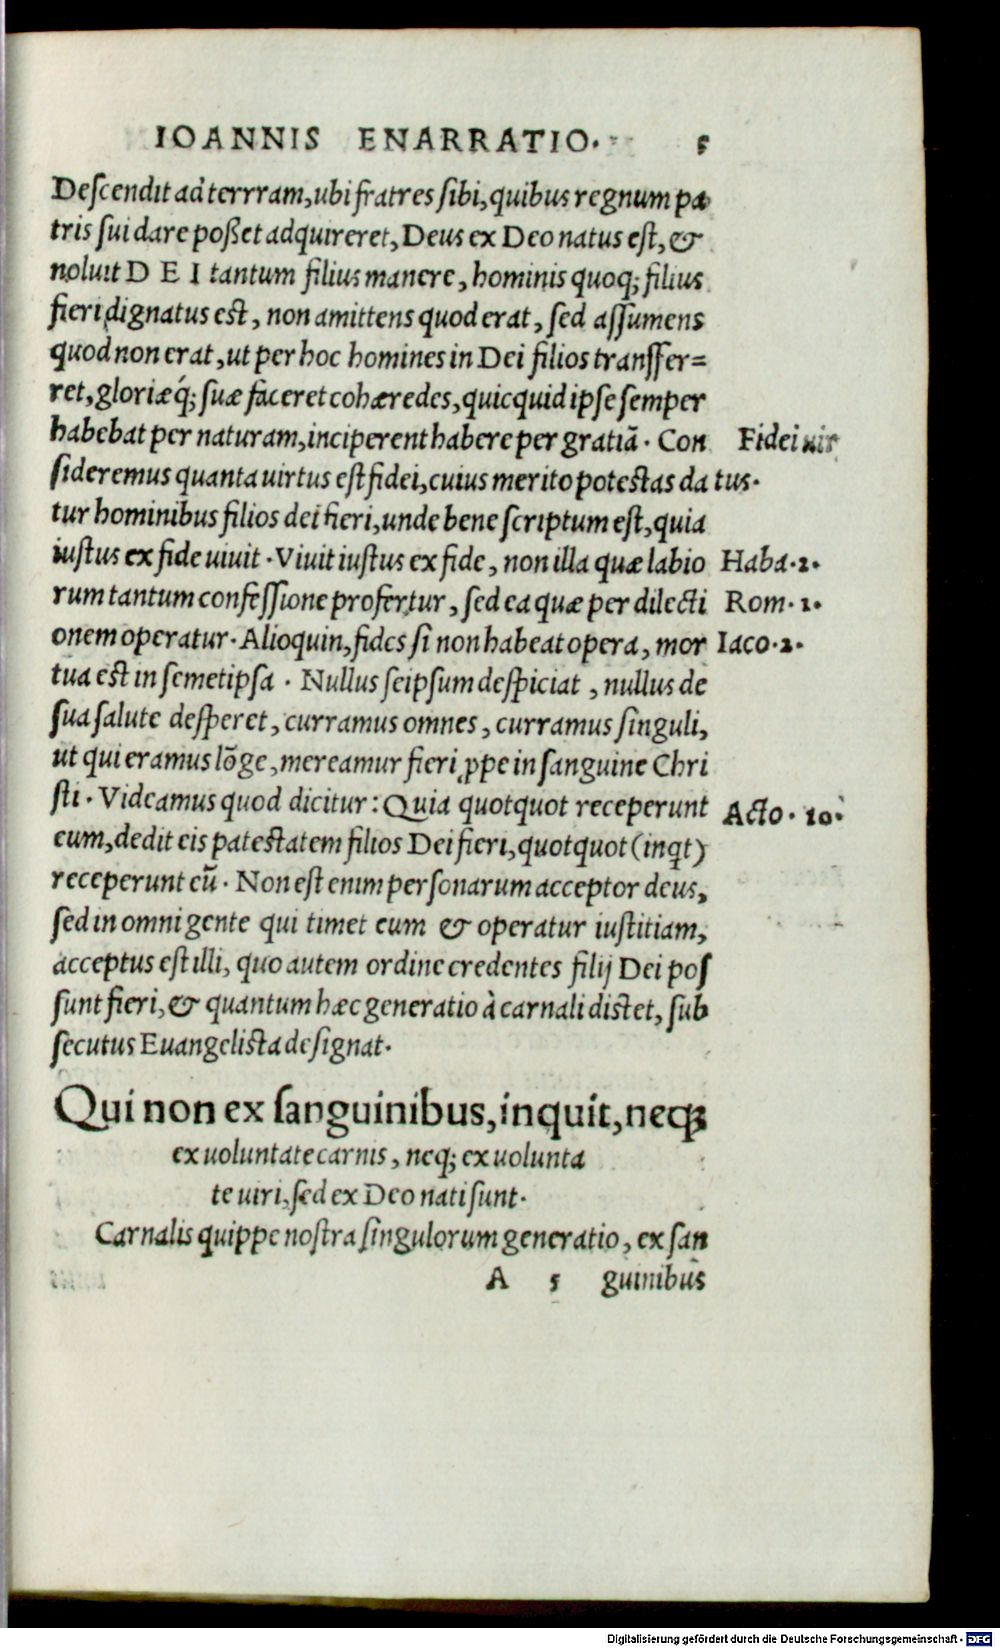 IOANNIS ENARRATIO. 5
Descendit ad terrram, ubi fratres sibi, quibus regnum pa
tris sui dare posset adquireret, Deus ex Deo natus est, &
noluit D E I tantum filius manere, hominis quoq; filius
fieri dignatus est, non amittens quod erat, sed assumens
quod non erat, ut per hoc homines in Dei filios transfer=
ret, gloriæq́; suæ faceret cohæredes, quicquid ipse semper
habebat per naturam, inciperent habere per gratiã. Con Fidei uir
sideremus quanta uirtus est fidei, cuius merito potestas da tus.
tur hominibus filios dei fieri, unde bene scriptum est, quia
iustus ex fide uiuit. Viuit iustus ex fide, non illa quæ labio Haba.2.
rum tantum confessione profertur, sed ea quæ per dilecti Rom. 1.
onem operatur. Alioquin, fides si non habeat opera, mor Iaco.2.
tua est in semetipsa. Nullus seipsum despiciat, nullus de
sua salute desperet, curramus omnes, curramus singuli,
ut qui eramus lõge, mereamur fieri ꝓpe in sanguine Chri
sti. Videamus quod dicitur: Quia quotquot receperunt
eum, dedit eis patestatem filios Dei fieri, quotquot (inqt) Acto. 10.
receperunt eũ. Non est enim personarum acceptor deus,
sed in omni gente qui timet eum & operatur iustitiam,
acceptus est illi, quo autem ordine credentes filij Dei pos
sunt fieri, & quantum hæc generatio à carnali distet, sub
secutus Euangelista designat.
Qui non ex sanguinibus, inquit, neq;
ex uoluntate carnis, neq; ex uolunta
te uiri, sed ex Deo nati sunt.
Carnalis quippe nostra singulorum generatio, ex san
A 5 guinibus
Digitalisierung gefördert durch die Deutsche Forschungsgemeinschaft - DFG